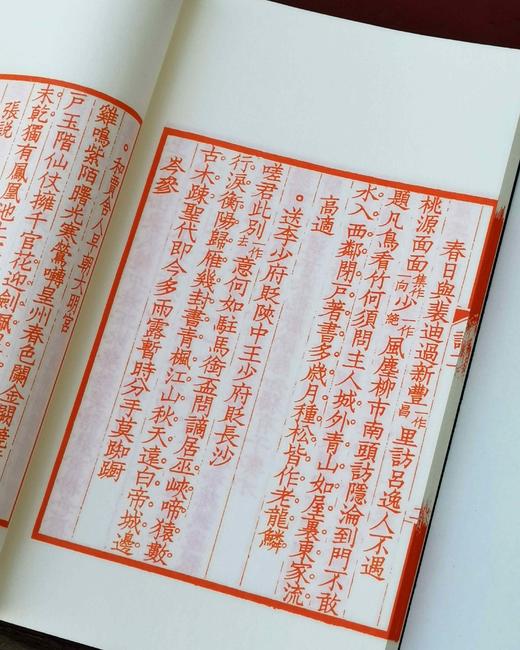 春日與裴迪過新豐一作昌里訪呂逸人不遇
桃源面面集作一向少一作絕風塵。柳市南頭訪隱淪。到門不敢
題凡鳥。看竹何須問主人。城外青山如屋裏。東家流
水入西鄰。閉戶著書多歲月。種松皆作老龍鱗。
高適
。送李少府貶陝中王少府貶長沙
嗟君此別一作去意何如。駐馬銜盃問謫居。巫峽啼猿數
行淚。衡陽歸雁幾封書。青楓江山秋天遠。白帝城邊
古木疎。聖代即今多雨露。暫時分手莫踟躕。
岑參
。和賈舍人早朝大明宮
雞鳴紫陌曙光寒。鶯囀皇州春色闌。金闕
戶。玉階仙仗擁千官。花迎劍珮
未乾。獨有鳳凰池上
張說